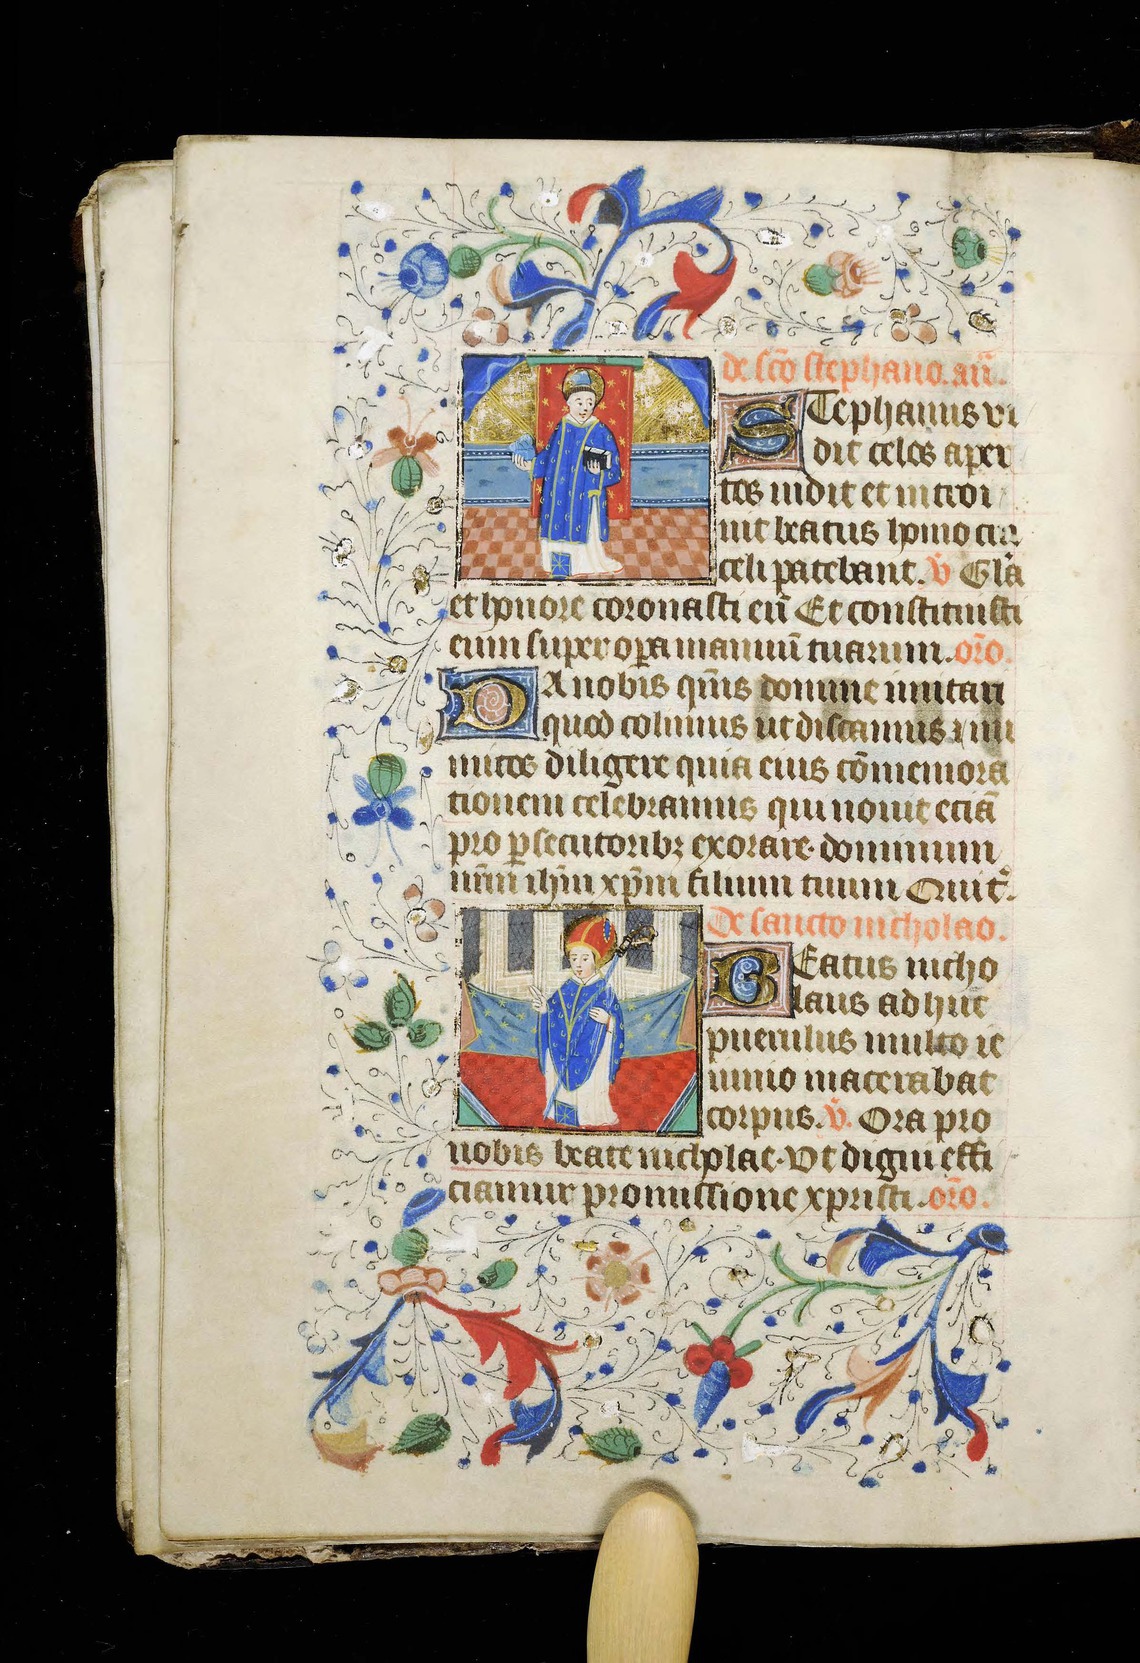 de sc̄o stephano. an̄.
Stephanus vi
dit celos aper
tos uidit et introi
uit beatus homo cui
celi patebant. v̄ Gl̄a
et honore coronasti eū Et constituisti
eum super opa manuū tuarum. or̄o.
Da nobis qm̄s domine imitari
quod colimus ut discamus z ini
micos diligere quia eius cōmemora
tionem celebramus qui nouit eciā
pro psecutoribz exorare dominum
nr̄m ih̄m xp̄m filium tuum Qui t̄.
De sancto nicholao.
Beatus nicho
laus adhuc
puerulus multo ie
iunio macerabat
corpus. v̄. Ora pro
nobis beate nicholae. Vt digni effi
ciamur promissione xpristi. or̄o.